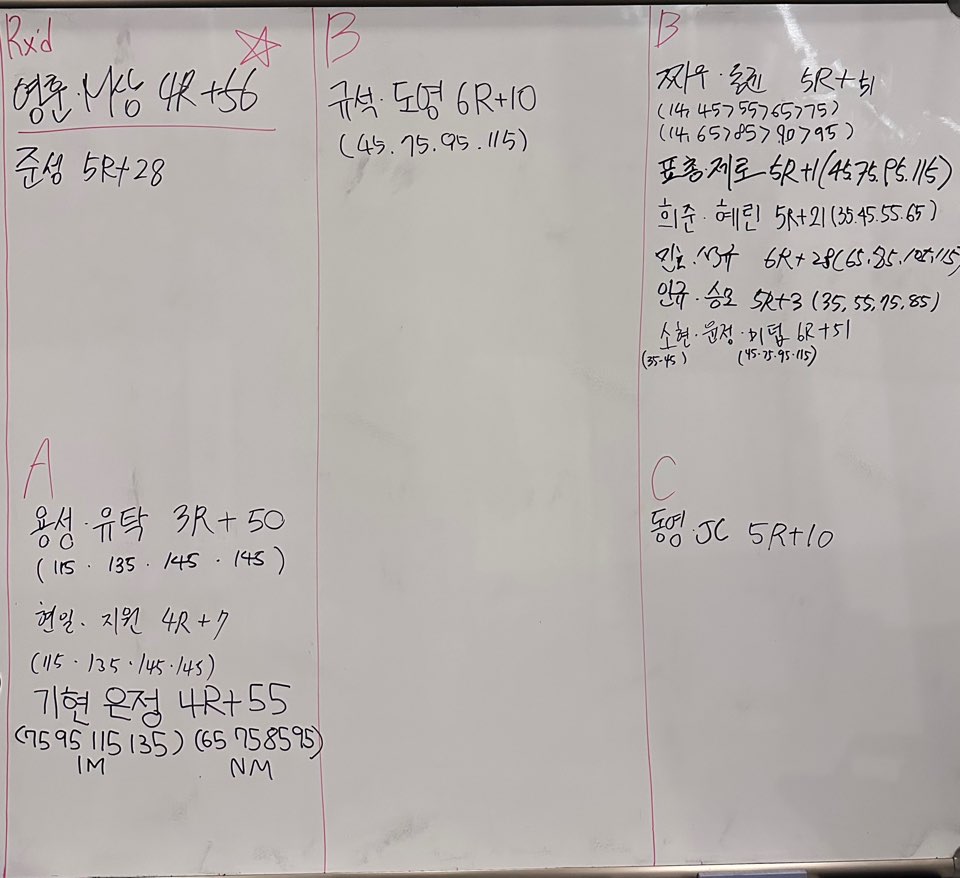 Rx'd
영훈·마상 4R+56
준성 5R+28
A
용성·유탁 3R+50
(115 · 135 · 145 · 145)
현일· 지원 4R+7
(115 · 135 · 145 · 145)
기현 은정 4R+55
(75 95 115 135) (65 75 85 95)
1M NM
B
규석·도영 6R+10
(45.75.95.115)
B
5R+51
(14, 45>55>65>75)
(14, 65>85>90>95)
표총·제로 5R+1(45.75.95.115)
희준·혜린 5R+21(35.45.55.65)
6R+28(65.85.105.115)
인규·승모 5R+3 (35, 55, 75, 85)
소현·윤정· 6R+51
(35·45) (45·75·95·115)
C
동영·JC 5R+10